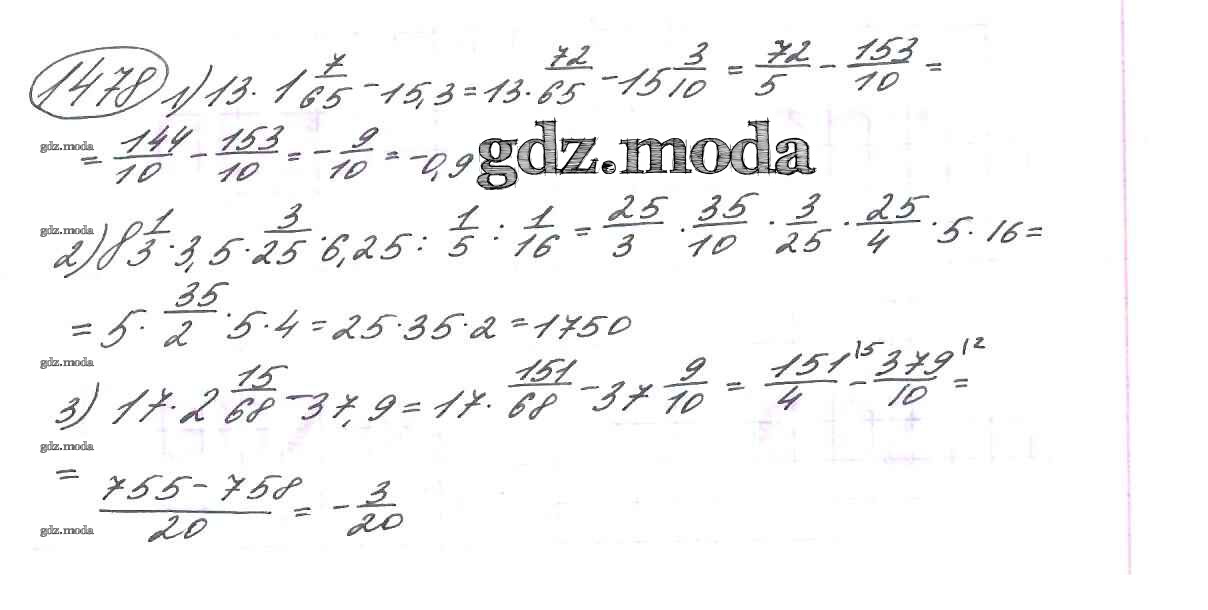 1478 1) 13 · 1 7/65 - 15,3 = 13 · 72/65 - 15 3/10 = 72/5 - 153/10 =
gdz.moda
= 144/10 - 153/10 = - 9/10 = -0,9
gdz.moda
gdz.moda
2) 8 1/3 · 3,5 · 3/25 · 6,25 : 1/5 : 1/16 = 25/3 · 35/10 · 3/25 · 25/4 · 5 · 16 =
= 5 · 35/2 · 5 · 4 = 25 · 35 · 2 = 1750
gdz.moda
3) 17 · 2 15/68 - 37,9 = 17 · 151/68 - 37 9/10 = 151/4 |5 - 379/10 |2 =
gdz.moda
= 755 - 758/20 = - 3/20
gdz.moda